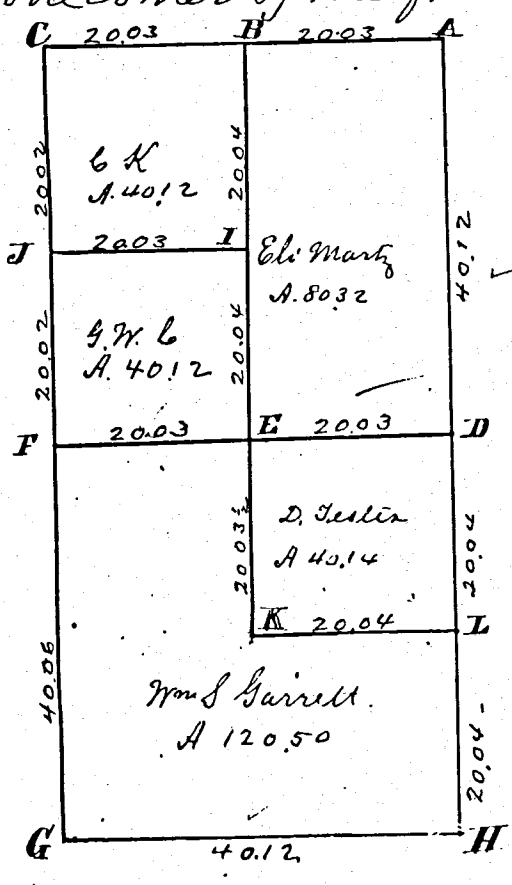 C 20.03 B 20.03 A
20.02
C K
A. 40.12
20.04
40.12
J 20.03 I
Eli Martz
A. 80 32
20.02
G. W. C
A. 40.12
20.04
F 20.03 E 20.03 D
20 03½
D.
A 40.14
20.04
K 20.04 L
40.06
Wm S Garrett.
A 120.50
20.04
G 40.12 H